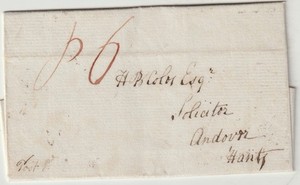 P 6
H B Coles Esqr
Solicitor
Andover
Hants